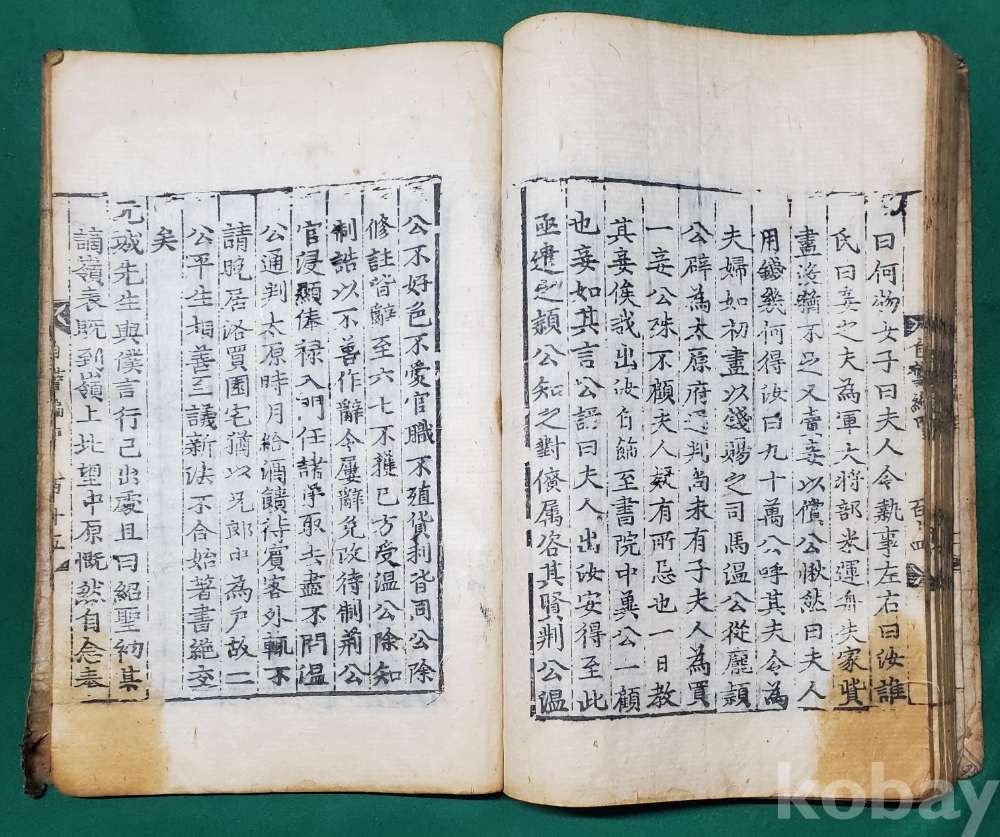 曰何物女子曰夫人令執事左右曰汝誰
氏曰妾之夫為軍大將部米運舟失家貲
盡沒猶不足又賣妾以償公愀然曰夫人
用錢幾何得汝曰九十萬公呼其夫令為
夫婦如初盡以錢賜之司馬溫公從龐潁
公辟為太原府通判尚未有子夫人為買
一妾公殊不顧夫人疑有所忌也一日教
其妾俟我出汝自飾至書院中冀公一顧
也妾如其言公訝曰夫人出汝安得至此
亟遣之潁公知之對僚属咨其賢荆公溫
公不好色不愛官職不殖貨利皆同公除
修註皆辭至六七不獲已方受溫公除知
制誥以不善作辭令屢辭免改待制荆公
官浸顯俸禄入門任諸弟取去盡不問溫
公通判太原時月給酒饋待賓客外輒不
請晚居洛買園宅猶以兄郎中為戶故二
公平生相善至議新法不合始著書絶交
矣
元城先生與僕言行己出處且曰紹聖初某
謫嶺表既到嶺上北望中原慨然自念表
自警編
百四
kobay